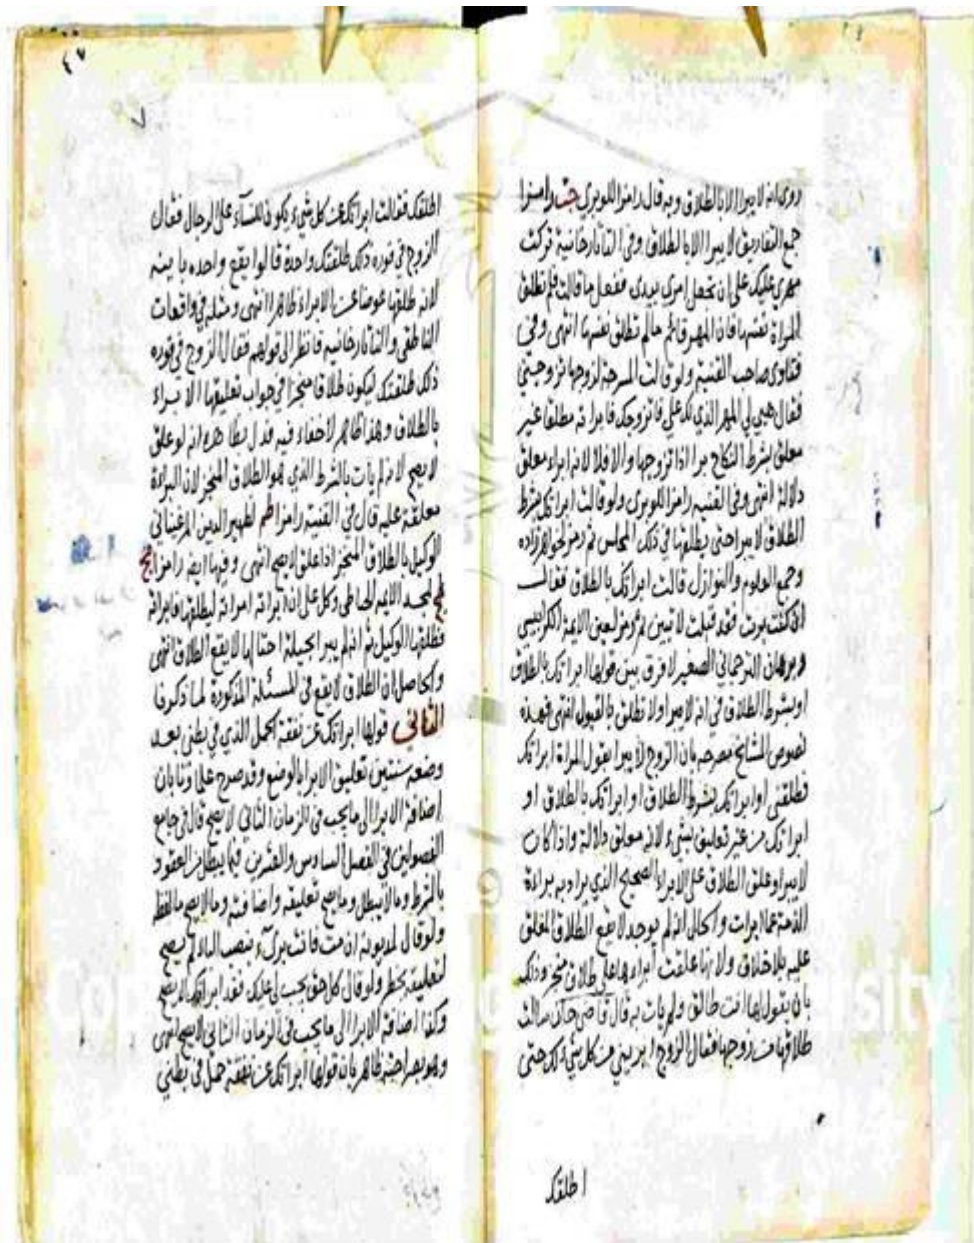 روى انه لا يبرا الا بالطلاق وبه قال رامزا للوبرى جت رامزا
جمع التفاريق لا يبرا الا بالطلاق وفى التاتارخانية تركت
مهرى عليك على ان تجعل امرى بيدى ففعل ما قالت فلم تطلق
المراة نفسها فان المهر قائم مالم تطلق نفسها انتهى وفى
فتاوى صاحب القنية ولو قالت المسرحة لزوجها تزوجنى
فقال هبى لى المهر الذى لك على فاتزوجك فابراته مطلقا غير
معلق بشرط النكاح يبرا اذا تزوجها والا فلا لانه ابراء معلق
دلالة انتهى وفى القنية رامزا للوبرى ولو قالت ابراتك بشرط
الطلاق لا يبرا حتى يطلقها فى ذلك المجلس ثم رمز خواهر زاده
وجمع العلوم والنوازل قالت ابراتك بالطلاق فقالت
فقد قبلت لا تبين ثم رمز لعين الايمة الكرابيسى
وبرهان الترجمانى الصغير لا فرق بين قولها ابراتك بالطلاق
او بشرط الطلاق فى انه لا يبرا ولا تطلق بالقبول انتهى فهذه
نصوص المشايخ مصرحه بان الزوج لا يبرا بقول المراة ابراتك
فطلقنى او ابراتك بشرط الطلاق او ابراتك بالطلاق او
ابراتك من غير تعليق بشىء لانه معلق دلالة واذا كان
لا يبرا وعلق الطلاق على الابراء الصحيح الذى يراد به براءة
الذمة والحال انه لم يوجد لا يقع الطلاق المعلق
عليه بلا خلاف ولانها علقت ابراءها على طلاق منجز وذلك
بان يقول لها انت طالق ولم يات به قال قاضى خان سالت
طلاقها من زوجها فقال الزوج ابرينى من كل شىء لك حتى
اطلقك
٤٧
اطلقك فقالت ابراتك عن كل شىء يكون للنساء على الرجال فقال
الزوج فى فوره ذلك طلقتك واحدة قالوا يقع واحده باينه
لانه طلقها عوضا عن الابراء ظاهرا انتهى ومثله فى واقعات
الناطفى والتاتارخانيه فانظر الى قولهم فقال الزوج فى فوره
ذلك طلقتك ليكون طلاقا منجزا فى جواب تعليقها الابراء
بالطلاق وهذا ظاهر لا خفاء فيه فدل بظاهره انه لو علق
لا يصح لانه لم يات بالشرط الذى هو الطلاق المنجز لان البراءة
معلقة عليه قال فى القنية رامزا ظم لظهير الدين المرغينانى
الوكيل بالطلاق المنجز اذا علق لا يصح انتهى وفيها ايضا رامزا
لمجد الايمه وكل على ان تبرائه امراته ليطلقها فابراته
فطلقها الوكيل ثم انه لم يبرا بحيلة احتالها لا يقع الطلاق انتهى
والحاصل ان الطلاق لا يقع فى المسئلة المذكورة لما ذكرنا
الثانى قولها ابراتك عن نفقة الحمل الذى فى بطنى بعد
وضعه سنتين تعليق الابراء بالوضع وقد صرح علماؤنا بان
اضافة الابراء الى ما يجب فى الزمان الثانى لا يصح قال فى جامع
الفصولين فى الفصل السادس والعشرين فيما يبطل من العقود
بالشرط وما لا يبطل وما يصح تعليقه واضافته وما لا يصح ما لفظه
ولو قال لمديونه ان مت فانت برىء بنصب التاء لم يصح
لتعليقه بخطر ولو قال كل حق يجب لى عليك فقد ابراتك لا يصح
وكذا اضافة الابراء الى ما يجب فى الزمان الثانى لا يصح انتهى
وهو بصراحته ظاهر بان قولها ابراتك عن نفقة حمل فى بطنى